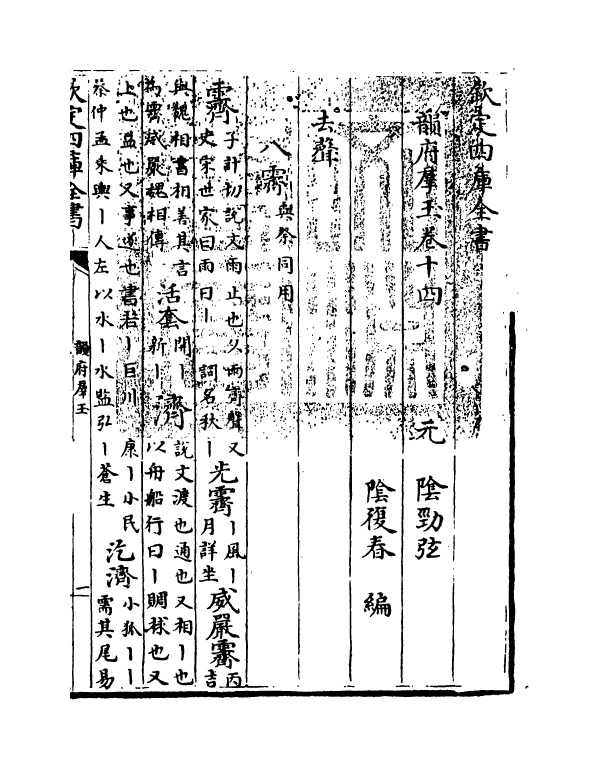 欽定四庫全書
韻府羣玉卷十四
元 陰勁弦
陰復春 編
去聲
八霽與祭同用
霽子計切說文雨止也从雨齊聲又
史宋世家曰雨曰丨 詞名秋丨光霽丨風丨
月詳坐威嚴霽丙
吉
與魏相書相善其言
為霽威嚴魏相傳活套開丨
新丨濟說文渡也通也又相丨也
以舟船行曰丨賙救也又
上也益也又事遂也書若丨巨川 康丨小民
蔡仲孟朱輿丨人左以水丨水監弘丨蒼生汔濟小狐丨丨
需其尾易
欽定四庫全書
韻府羣玉
一